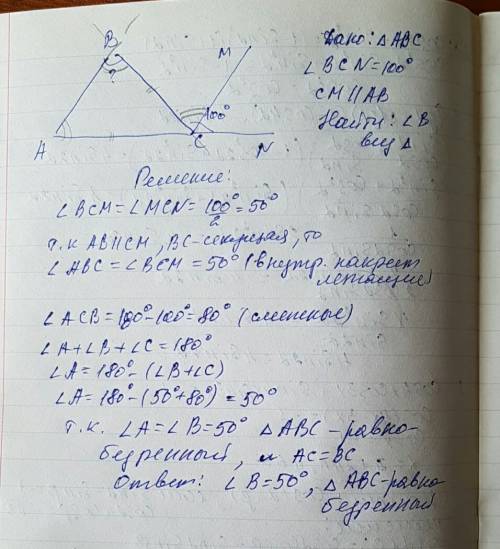 B
M
Дано: △ABC
?
∠BCN=100°
100°
CM∥AB
A
C
N
Найти: ∠B
вид △
Решение:
∠BCM=∠MCN=100°/2=50°
т.к AB∥CM, BC-секущая, то
∠ABC=∠BCM=50° (внутр. накрест
лежащие)
∠ACB=180°-100°=80° (смежные)
∠A+∠B+∠C=180°
∠A=180°-(∠B+∠C)
∠A=180°-(50°+80°)=50°
т.к. ∠A=∠B=50° △ABC-равно-
бедренный, и AC=BC.
Ответ: ∠B=50°, △ABC-равно
бедренный